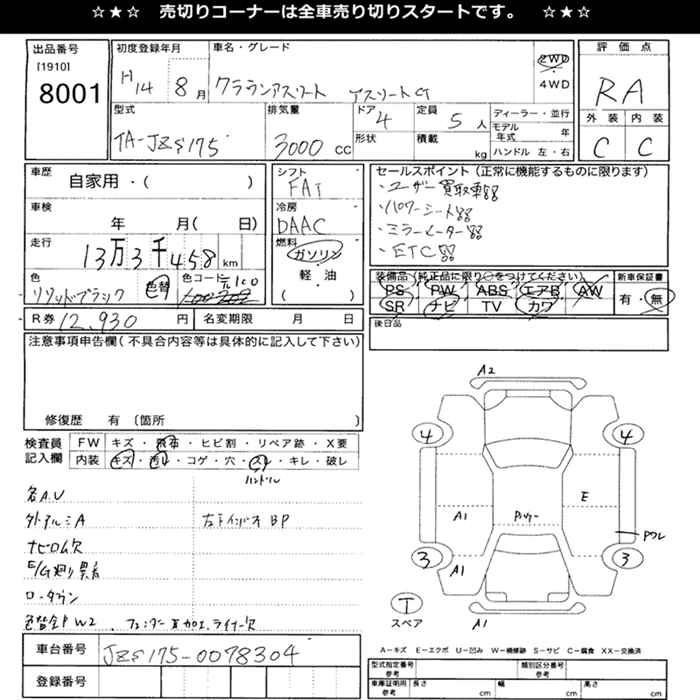 ☆★☆ 売切りコーナーは全車売り切りスタートです。 ☆★☆
出品番号
[1910]
8001
初度登録年月
H14 8月
車名・グレード
クラウンアスリート アスリートG
2WD
4WD
評価点
RA
外装 内装
C C
型式
TA-JZS175
排気量
3000 CC
ドア
4
形状
定員
5人
積載
kg
ディーラー・並行
モデル年式 年
ハンドル 左・右
車歴
自家用・( )
車検
年 月( 日)
走行
13万3千458 km
色
ソリッドブラック
色替
色コード
シフト
FAT
冷房
DAAC
燃料
ガソリン
軽・油
( )
R券 12,930 円
名変期限 月 日
セールスポイント(正常に機能するものに限ります)
・ユーザー買取車!!
・パワーシート!!
・ミラーメーター!!
・ETC!!
装備品(純正品に限り○をつけてください)
PS PW ABS エアB AW
SR ナビ TV カワ
新車保証書
有・無
後日品
注意事項申告欄(不具合内容等は具体的に記入して下さい)
修復歴 有(箇所 )
検査員
記入欄
FW キズ・飛石・ヒビ割・リペア跡・X要
内装 キズ・汚レ・コゲ・穴・スレ・キレ・破レ
ハンドル
各A.U
外アルミA
左インパネ BP
ナビROM欠
E/G廻り異音
ローダウン
色替全PW2、フェンダー耳加工、ライナー欠
A2
4
4
A1
Pシャワー
E
Pワレ
3
A1
3
T
スペア
A1
A-キズ E-エクボ U-凹み W-補修跡 S-サビ C-腐食 XX-交換済
車台番号
JZS175-0078304
登録番号
型式指定番号
参考
類別区分番号
参考
車庫証明用
参考
長さ cm
幅 cm
高さ cm